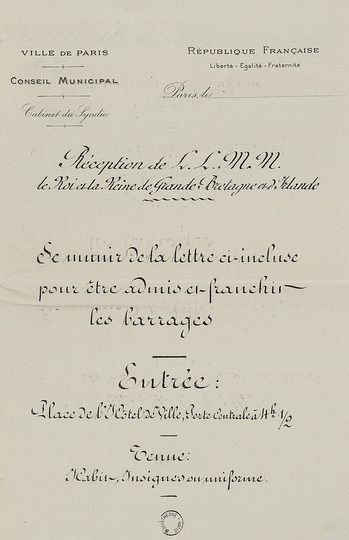 VILLE DE PARIS
CONSEIL MUNICIPAL
Cabinet du Syndic
RÉPUBLIQUE FRANÇAISE
Liberté - Egalité - Fraternité
Paris, le
Réception de L.L.M.M.
le Roi et la Reine de Grande-Bretagne et d'Irlande
Se munir de la lettre ci-incluse
pour être admis et franchir
les barrages
Entrée:
Place de l'Hôtel de Ville, Porte Centrale à 4h 1/2
Tenue:
Habit, Insignes ou uniforme.